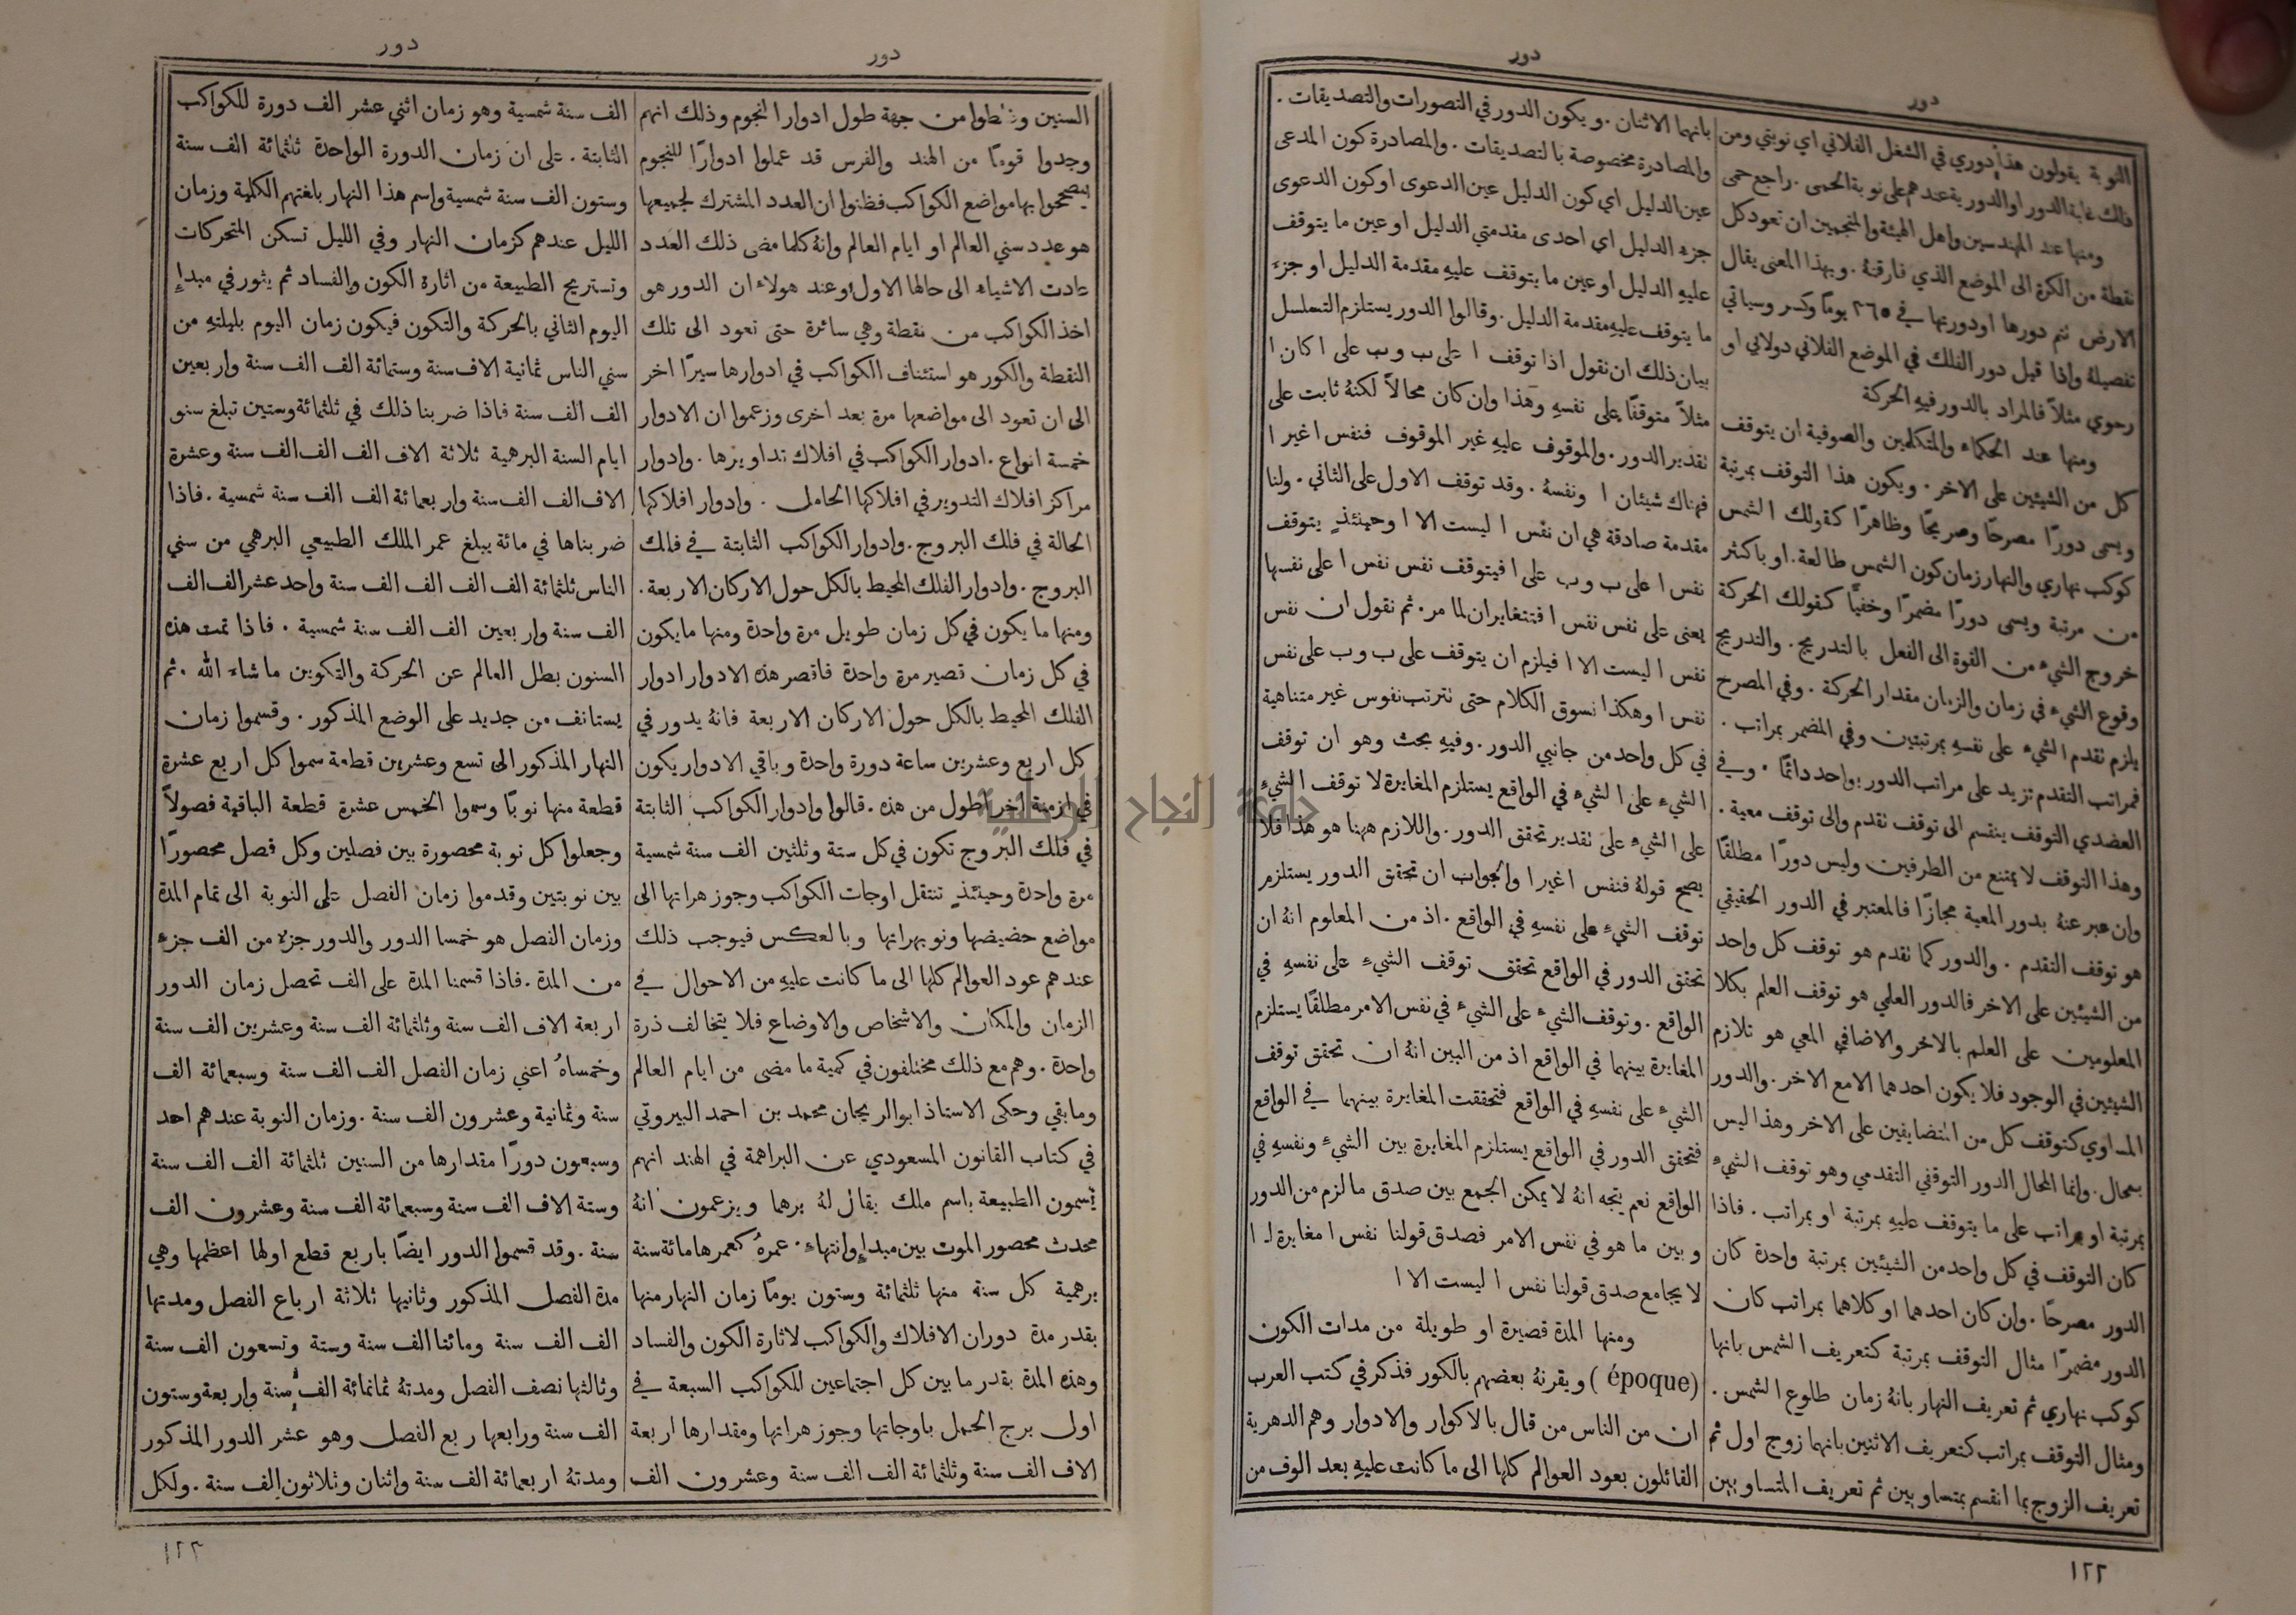 دور
دور
النوبة يقولون هذا دوري في الشغل الفلاني اي نوبتي ومن
ذلك غاية الدور او الدورية عندهم على نوبة الحمى . راجع حمى
ومنها عند المهندسين واهل الهيئة والمنجمين ان تعود كل
نقطة من الكرة الى الموضع الذي فارقتهُ . وبهذا المعنى يقال
الارض تتم دورها او دورتها في ٣٦٥ يومًا وكسر وسياتي
تفصيلهُ واذا قيل دور الفلك في الموضع الفلاني دولابي او
رحوي مثلاً فالمراد بالدور فيهِ الحركة
ومنها عند الحكماء والمتكلمين والصوفية ان يتوقف
كل من الشيئين على الاخر . ويكون هذا التوقف بمرتبة
ويسمى دورًا مصرحًا وصريحًا وظاهرًا كقولك الشمس
كوكب نهاري والنهار زمان كون الشمس طالعة . او باكثر
من مرتبة ويسمى دورًا مضمرًا وخفيًّا كقولك الحركة
خروج الشيء من القوة الى الفعل بالتدريج . والتدريج
وقوع الشيء في زمان والزمان مقدار الحركة . وفي المصرح
يلزم تقدم الشيء على نفسهِ بمرتبتين وفي المضمر بمراتب .
فمراتب التقدم تزيد على مراتب الدور بواحد دائمًا . وفي
العضدي التوقف ينقسم الى توقف تقدم والى توقف معية .
وهذا التوقف لا يمتنع من الطرفين وليس دورًا مطلقًا
وان عبر عنهُ بدور المعية مجازًا فالمعتبر في الدور الحقيقي
هو توقف التقدم . والدور كما تقدم هو توقف كل واحد
من الشيئين على الاخر فالدور العلمي هو توقف العلم بكلا
المعلومين على العلم بالاخر والاضافي المعي هو تلازم
الشيئين في الوجود فلا يكون احدهما الا مع الاخر . والدور
المساوي كتوقف كل من المتضايفين على الاخر وهذا ليس
بمحال . وانما المحال الدور التوقفي التقدمي وهو توقف الشيء
بمرتبة او بمراتب على ما يتوقف عليهِ بمرتبة او بمراتب . فاذا
كان التوقف في كل واحد من الشيئين بمرتبة واحدة كان
الدور مصرحًا . وان كان احدهما او كلاهما بمراتب كان
الدور مضمرًا مثال التوقف بمرتبة كتعريف الشمس بانها
كوكب نهاري ثم تعريف النهار بانهُ زمان طلوع الشمس .
ومثال التوقف بمراتب كتعريف الاثنين بانهما زوج اول ثم
تعريف الزوج بما انقسم بمتساويين ثم تعريف المتساويين
بانهما الاثنان . ويكون الدور في التصورات والتصديقات .
والمصادرة مخصوصة بالتصديقات . والمصادرة كون المدعى
عين الدليل اي كون الدليل عين الدعوى او كون الدعوى
جزء الدليل اي احدى مقدمتي الدليل او عين ما يتوقف
عليهِ الدليل او عين ما يتوقف عليهِ مقدمة الدليل او جزء
ما يتوقف عليهِ مقدمة الدليل . وقالوا الدور يستلزم التسلسل
بيان ذلك ان نقول اذا توقف ا على ب وب على ا كان ا
مثلاً متوقفًا على نفسهِ وهذا وان كان محالاً لكنهُ ثابت على
تقدير الدور . والموقوف عليهِ غير الموقوف فنفس ا غير ا
فهناك شيئان ا ونفسهُ . وقد توقف الاول على الثاني . ولنا
مقدمة صادقة هي ان نفس ا ليست الا ا وحينئذٍ يتوقف
نفس ا على ب وب على ا فيتوقف نفس نفس ا على نفسها
يعني على نفس نفس ا فتتغايران لما مر . ثم نقول ان نفس
نفس ا ليست الا ا فيلزم ان يتوقف على ب وب على نفس
نفس ا وهكذا نسوق الكلام حتى تترتب نفوس غير متناهية
في كل واحد من جانبي الدور . وفيهِ بحث وهو ان توقف
الشيء على الشيء في الواقع يستلزم المغايرة لا توقف الشيء
على الشيء على تقدير تحقق الدور . واللازم ههنا هو هذا فلا
يصح قولهُ فنفس ا غير ا والجواب ان تحقق الدور يستلزم
توقف الشيء على نفسهِ في الواقع . اذ من المعلوم انهُ ان
تحقق الدور في الواقع تحقق توقف الشيء على نفسهِ في
الواقع . وتوقف الشيء على الشيء في نفس الامر مطلقًا يستلزم
المغايرة بينهما في الواقع اذ من البين انهُ ان تحقق توقف
الشيء على نفسهِ في الواقع فتحققت المغايرة بينهما في الواقع
فتحقق الدور في الواقع يستلزم المغايرة بين الشيء ونفسهِ في
الواقع نعم يتجه انهُ لا يمكن الجمع بين صدق ما لزم من الدور
وبين ما هو في نفس الامر فصدق قولنا نفس ا مغايرة لـ ا
لا يجامع صدق قولنا نفس ا ليست الا ا
ومنها المدة قصيرة او طويلة من مدات الكون
(époque) ويقرنهُ بعضهم بالكور فذكر في كتب العرب
ان من الناس من قال بالاكوار والادوار وهم الدهرية
القائلون بعود العوالم كلها الى ما كانت عليهِ بعد الوف من
١٢٢
دور
دور
السنين وغلطوا من جهة طول ادوار النجوم وذلك انهم
وجدوا قومًا من الهند والفرس قد عملوا ادوارًا للنجوم
ليصححوا بها مواضع الكواكب فظنوا ان العدد المشترك لجميعها
هو عدد سني العالم او ايام العالم وانهُ كلما مضى ذلك العدد
عادت الاشياء الى حالها الاول وعند هولاء ان الدور هو
اخذ الكواكب من نقطة وهي سائرة حتى تعود الى تلك
النقطة والكور هو استئناف الكواكب في ادوارها سيرًا اخر
الى ان تعود الى مواضعها مرة بعد اخرى وزعموا ان الادوار
خمسة انواع . ادوار الكواكب في افلاك تداويرها . وادوار
مراكز افلاك التدوير في افلاكها الحامل . وادوار افلاكها
الحالة في فلك البروج . وادوار الكواكب الثابتة في فلك
البروج . وادوار الفلك المحيط بالكل حول الاركان الاربعة .
ومنها ما يكون في كل زمان طويل مرة واحدة ومنها ما يكون
في كل زمان قصير مرة واحدة فاقصر هذه الادوار ادوار
الفلك المحيط بالكل حول الاركان الاربعة فانهُ يدور في
كل اربع وعشرين ساعة دورة واحدة وباقي الادوار يكون
في ازمنة اخر اطول من هذه . قالوا وادوار الكواكب الثابتة
في فلك البروج تكون في كل ستة وثلثين الف سنة شمسية
مرة واحدة وحينئذٍ تنتقل اوجات الكواكب وجوزهراتها الى
مواضع حضيضها ونوبهراتها وبالعكس فيوجب ذلك
عندهم عود العوالم كلها الى ما كانت عليهِ من الاحوال في
الزمان والمكان والاشخاص والاوضاع فلا يتخالف ذرة
واحدة . وهم مع ذلك مختلفون في كمية ما مضى من ايام العالم
وما بقي وحكى الاستاذ ابو الريحان محمد بن احمد البيروتي
في كتاب القانون المسعودي عن البراهمة في الهند انهم
يسمون الطبيعة باسم ملك يقال لهُ برهما ويزعمون انهُ
محدث محصور الموت بين مبداءٍ وانتهاءٍ . عمرهُ كعمرها مائة سنة
برهمية كل سنة منها ثلثمائة وستون يومًا زمان النهار منها
بقدر مدة دوران الافلاك والكواكب لاثارة الكون والفساد
وهذه المدة بقدر ما بين كل اجتماعين للكواكب السبعة في
اول برج الحمل باوجاتها وجوزهراتها ومقدارها اربعة
الاف الف سنة وثلثمائة الف الف سنة وعشرون الف
الف سنة شمسية وهو زمان اثني عشر الف دورة للكواكب
الثابتة . على ان زمان الدورة الواحدة ثلثمائة الف سنة
وستون الف سنة شمسية واسم هذا النهار بلغتهم الكلية وزمان
الليل عندهم كزمان النهار وفي الليل تسكن المتحركات
وتستريح الطبيعة من اثارة الكون والفساد ثم يثور في مبداءِ
اليوم الثاني بالحركة والتكون فيكون زمان اليوم بليلتهِ من
سني الناس ثمانية الاف سنة وستمائة الف الف سنة واربعين
الف الف سنة فاذا ضربنا ذلك في ثلثمائة وستين تبلغ سنو
ايام السنة البرهمية ثلاثة الاف الف الف الف سنة وعشرة
الاف الف الف سنة واربعمائة الف الف سنة شمسية . فاذا
ضربناها في مائة يبلغ عمر الملك الطبيعي البرهمي من سني
الناس ثلثمائة الف الف الف الف سنة واحد عشر الف الف
الف سنة واربعين الف الف سنة شمسية . فاذا تمت هذه
السنون بطل العالم عن الحركة والتكوين ما شاء الله . ثم
يستانف من جديد على الوضع المذكور . وقسموا زمان
النهار المذكور الى تسع وعشرين قطعة سموا كل اربع عشرة
قطعة منها نوبًا وسموا الخمس عشرة قطعة الباقية فصولاً
وجعلوا كل نوبة محصورة بين فصلين وكل فصل محصورًا
بين نوبتين وقدموا زمان الفصل على النوبة الى تمام المدة
وزمان الفصل هو خمسا الدور والدور جزء من الف جزء
من المدة . فاذا قسمنا المدة على الف تحصل زمان الدور
اربعة الاف الف سنة وثلثمائة الف سنة وعشرين الف سنة
وخمساهُ اعني زمان الفصل الف الف سنة وسبعمائة الف
سنة وثمانية وعشرون الف سنة . وزمان النوبة عندهم احد
وسبعون دورًا مقدارها من السنين ثلثمائة الف الف سنة
وستة الاف الف سنة وسبعمائة الف سنة وعشرون الف
سنة . وقد قسموا الدور ايضًا باربع قطع اولها اعظمها وهي
مدة الفصل المذكور وثانيها ثلاثة ارباع الفصل ومدتها
الف الف سنة ومائتا الف سنة وستة وتسعون الف سنة
وثالثها نصف الفصل ومدتهُ ثمانمائة الف سنة واربعة وستون
الف سنة ورابعها ربع الفصل وهو عشر الدور المذكور
ومدتهُ اربعمائة الف سنة واثنان وثلاثون الف سنة . ولكل
١٢٣
جامعة النجاح الوطنية